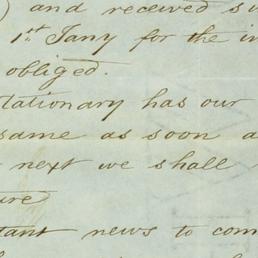 ) and received
1st Jany for the
obliged.
tationary has our
same as soon a
next we shall
ure
tant news to com